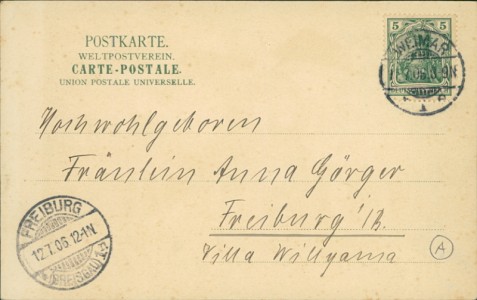 POSTKARTE.
WELTPOSTVEREIN.
CARTE-POSTALE.
UNION POSTALE UNIVERSELLE.
5 5
WEIMAR
Hochwohlgeboren
Fräulein Anna Görger
Freiburg i/B.
Villa Willyama
FREIBURG
12.7.06.12-1N.
(BREISGAU)
A